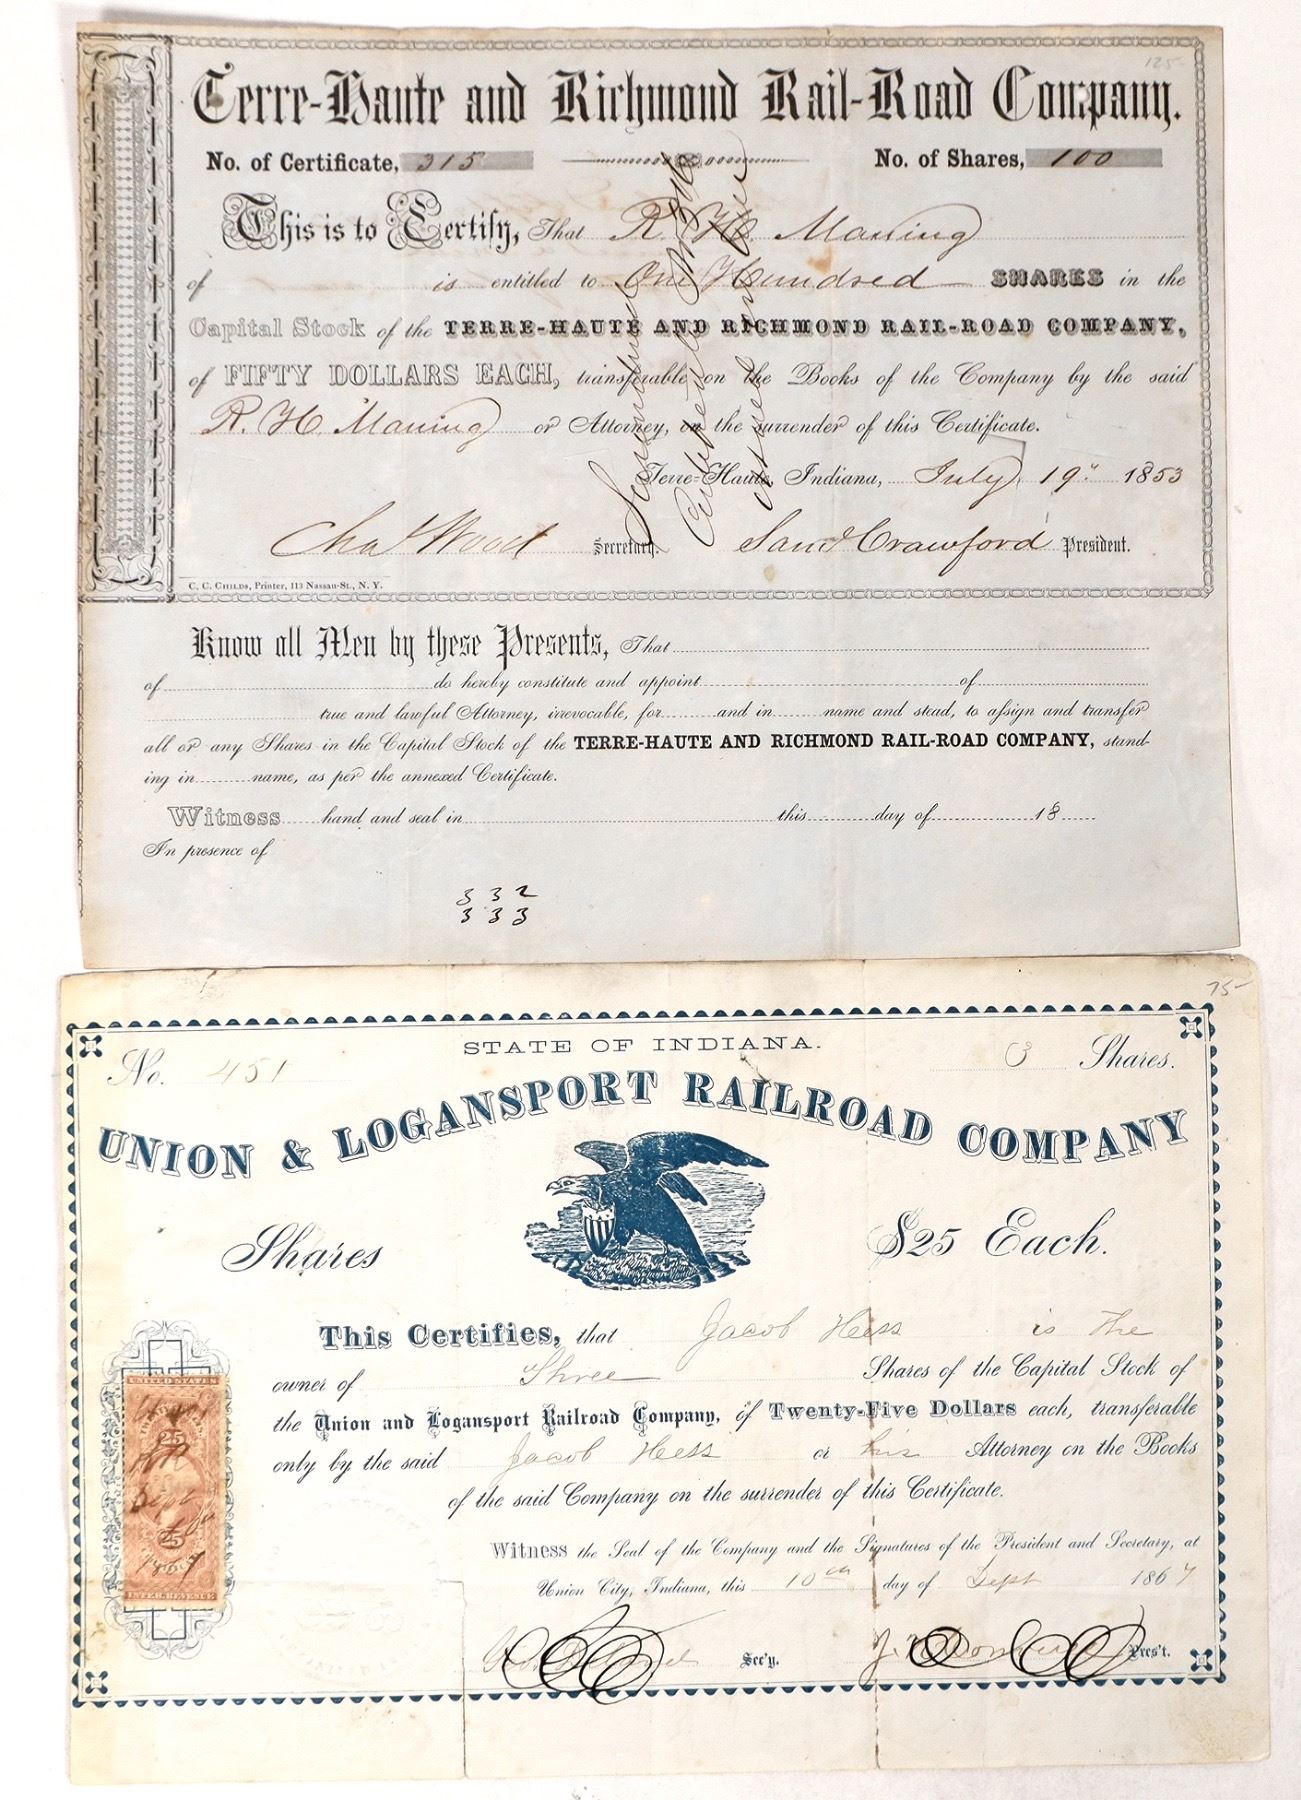 125-
Terre-Haute and Richmond Rail-Road Company.
No. of Certificate, 315 No. of Shares, 100
This is to Certify, That R. H. Maning
of is entitled to One Hundred SHARES in the
Capital Stock of the TERRE-HAUTE AND RICHMOND RAIL-ROAD COMPANY,
of FIFTY DOLLARS EACH, transferable on the Books of the Company by the said
R. H. Maning or Attorney, on the surrender of this Certificate.
Terre-Haute, Indiana, July 19" 1853
Chas Wood Secretary. Saml Crawford President.
C. C. CHILDS, Printer, 113 Nassau-St., N. Y.
Know all Men by these Presents, That
of do hereby constitute and appoint of
true and lawful Attorney, irrevocable, for and in name and stead, to assign and transfer
all or any Shares in the Capital Stock of the TERRE-HAUTE AND RICHMOND RAIL-ROAD COMPANY, stand-
ing in name, as per the annexed Certificate.
Witness hand and seal in this day of 18
In presence of
332
333
75-
STATE OF INDIANA.
No. 451 3 Shares.
UNION & LOGANSPORT RAILROAD COMPANY
Shares $25 Each.
This Certifies, that Jacob Hess is the
owner of Three Shares of the Capital Stock of
the Union and Logansport Railroad Company, of Twenty-Five Dollars each, transferable
only by the said Jacob Hess or his Attorney on the Books
of the said Company on the surrender of this Certificate.
Witness the Seal of the Company and the Signatures of the President and Secretary, at
Union City, Indiana, this 10th day of Sept 1867
Sec'y. Pres't.
UNITED STATES
25
Sept
25
INTER. REVENUE